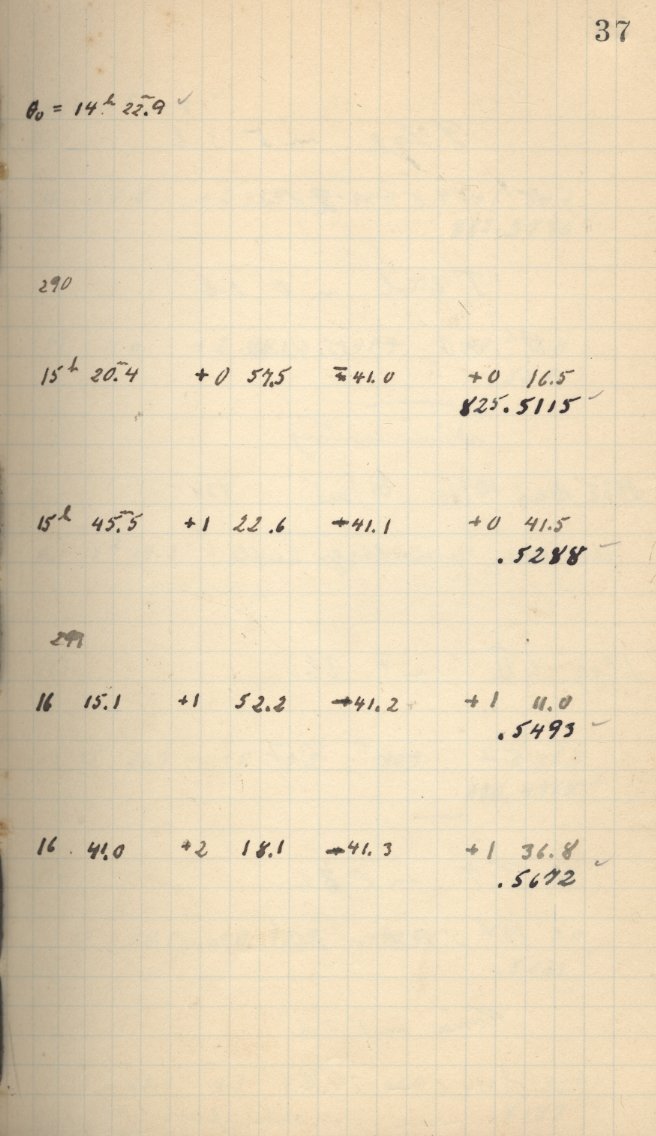 37
θ₀ = 14ʰ 22.9 ✓
290
15ʰ 20.4 +0 57.5 -41.0 +0 16.5
825.5115 ✓
15ʰ 45.5 +1 22.6 -41.1 +0 41.5
.5288 –
291
16 15.1 +1 52.2 -41.2 +1 11.0
.5493 –
16 41.0 +2 18.1 -41.3 +1 36.8
.5672 ✓